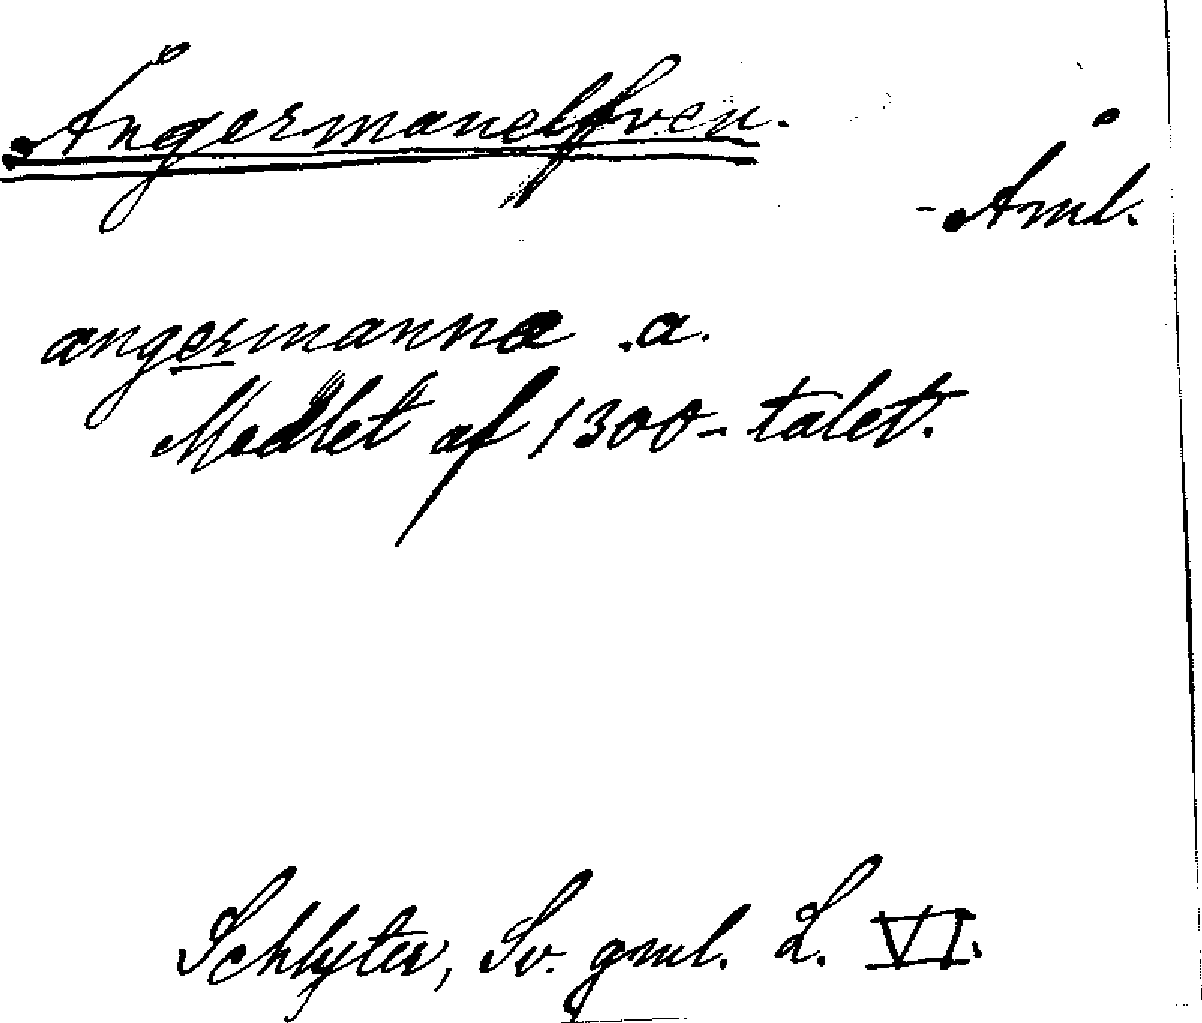 Ångermanelfven.
Åml.
angermannæ .a.
Medlet af 1300-talet.
Schlyter, Sv. gml. L. VI.